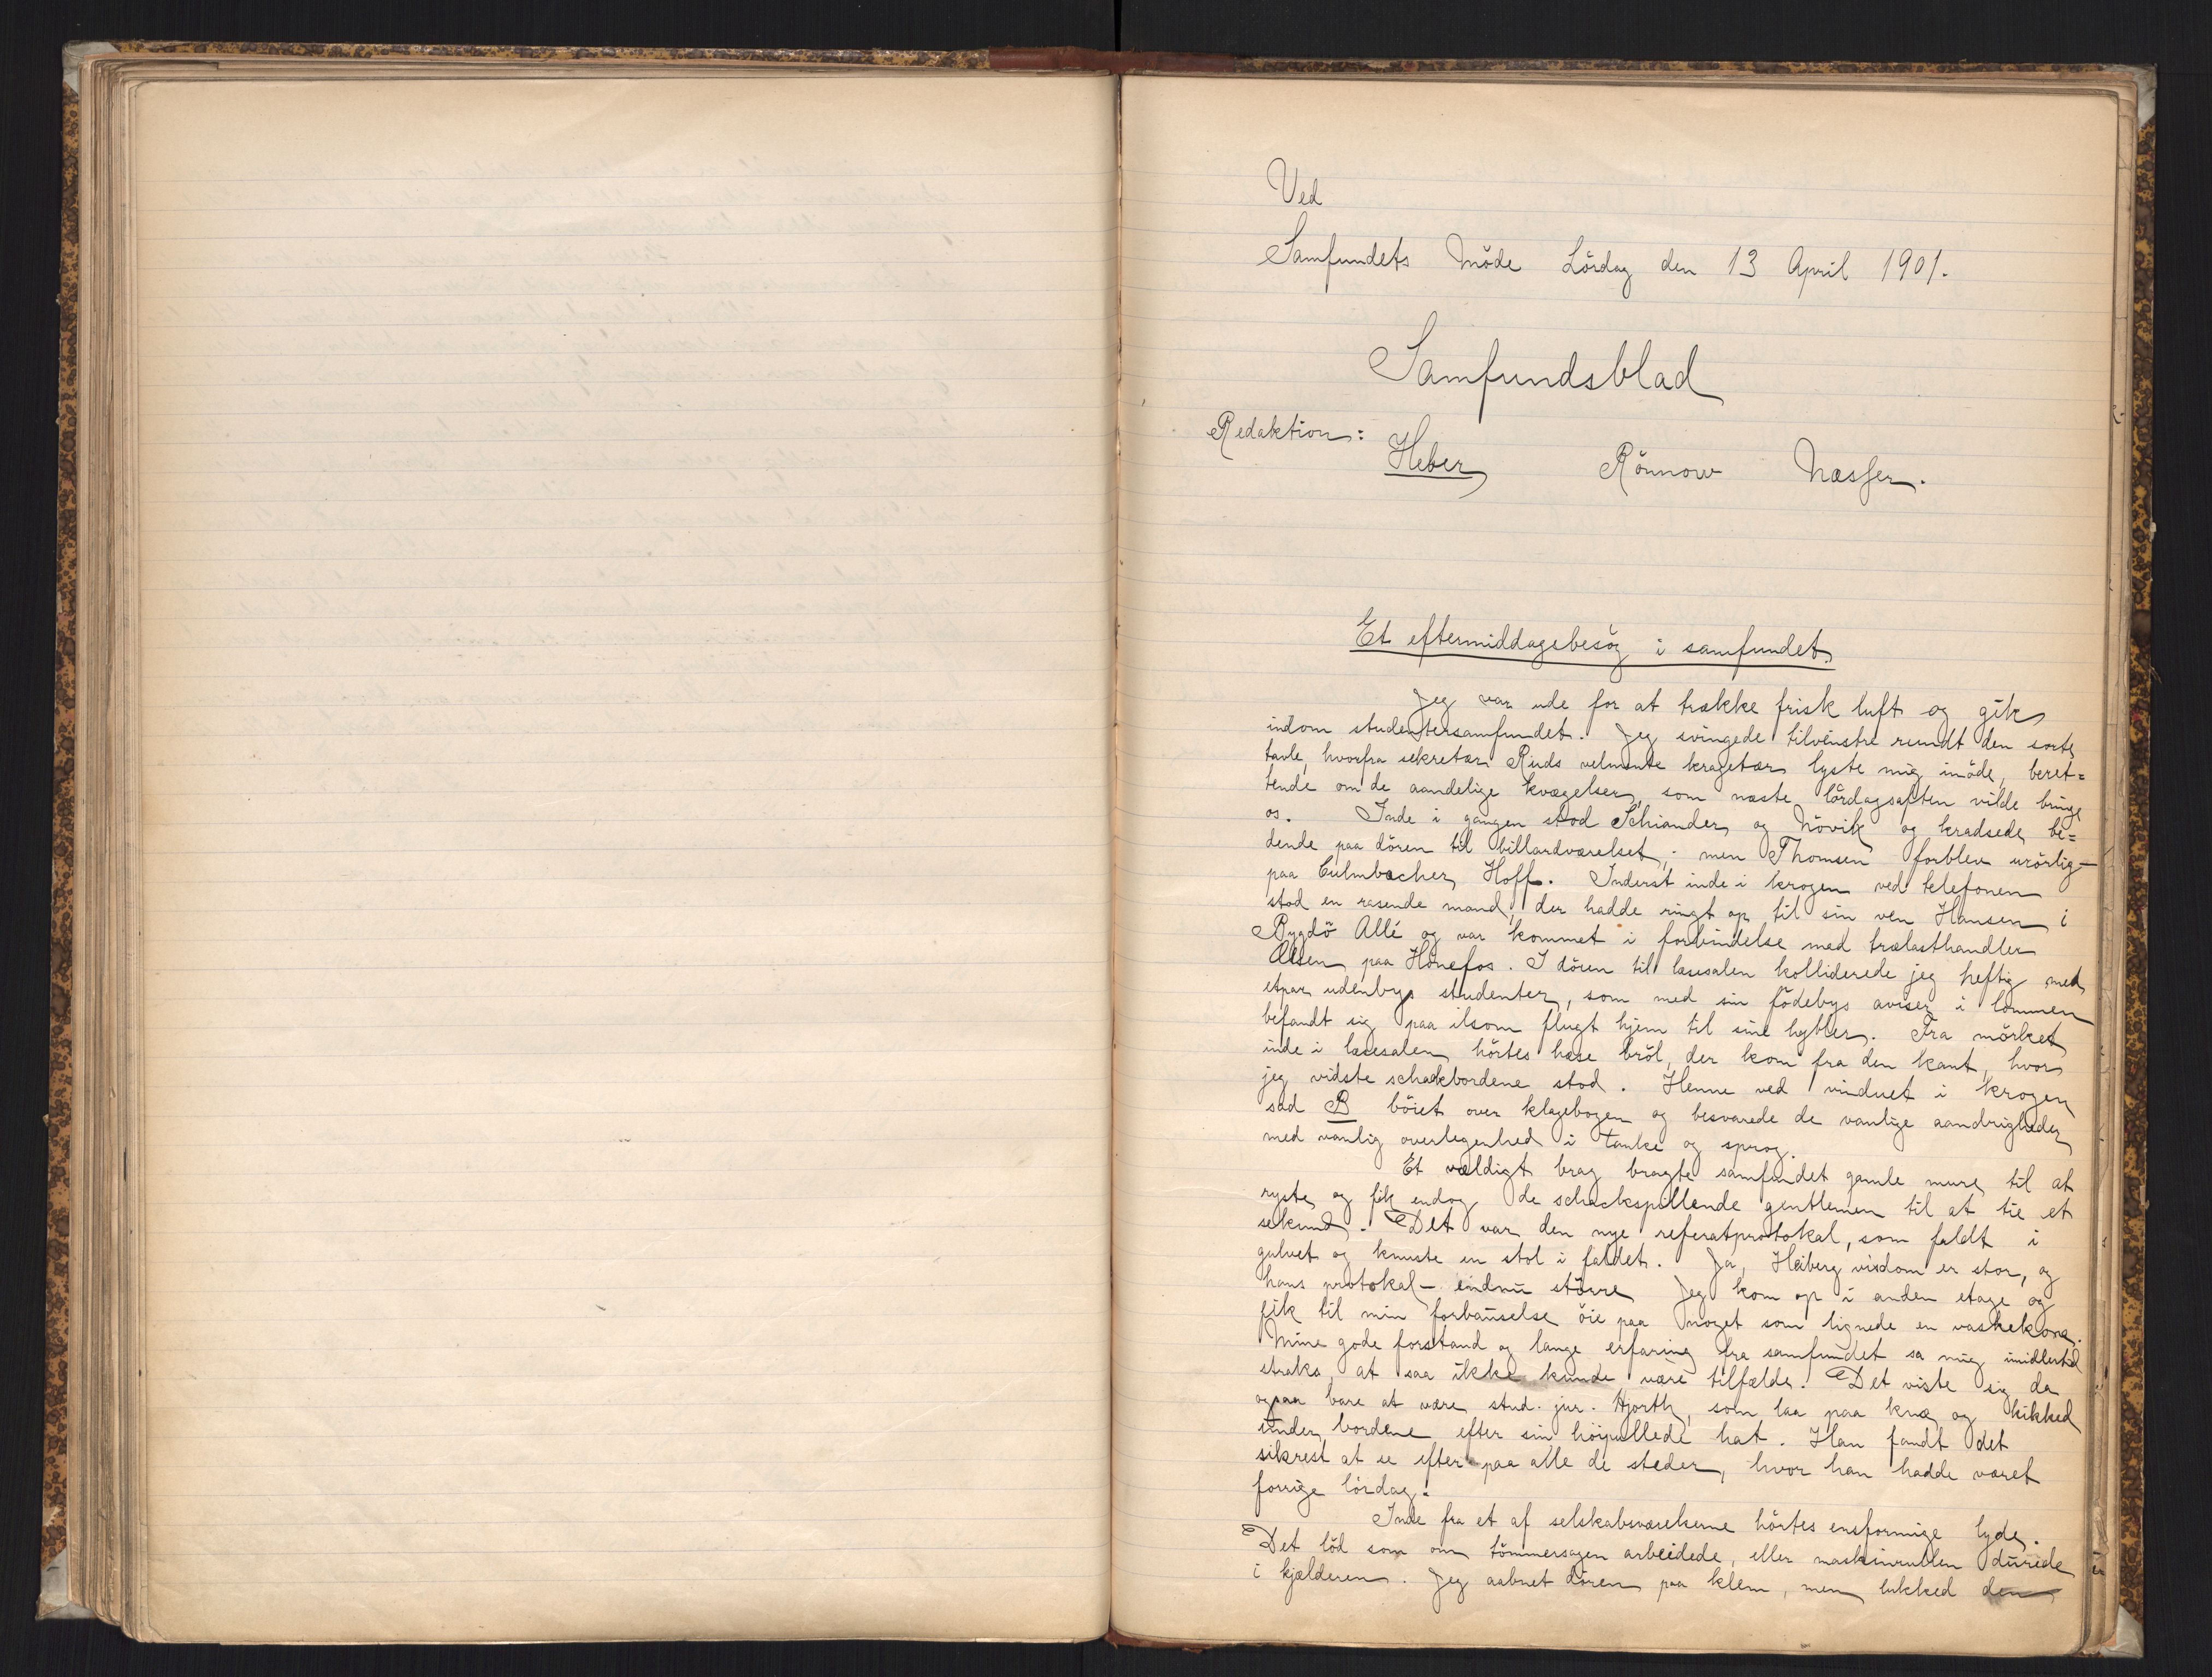 Ved
Samfundets Möde Lördag den 13 April 1901.
Samfundsblad
Redaktion:
Heber Rönnow Næsser.
Et eftermiddagsbesög i samfundet.
Jeg var ude for at trække frisk luft og gik
indom studentersamfundet. Jeg svingede tilvenstre rundt den sorte
tavle, hvorfra sekretær Ruds velmente kragetær lyste mig imöde, beret=
tende om de aandelige kvægelser, som næste lördagsaften vilde bringe
os. Inde i gangen stod Schiander og Növik og kradsede be=
dende paa dören til billardværelset; men Thomsen forblev urörlig—
paa Culmbacher Hoff. Inderst inde i krogen ved telefonen
stod en rasende mand, der hadde ringt op til sin ven Hansen i
Bygdö Allé og var kommet i forbindelse med trælasthandler
Olsen paa Hönefos. I dören til læsesalen kolliderede jeg heftig med
etpar udenbys studenter, som med sin födebys aviser i lommen
befandt sig paa ilsom flugt hjem til sine hybler. Fra mörket
inde i læsesalen hörtes hæse bröl, der kom fra den kant, hvor
jeg vidste schackbordene stod. Henne ved vinduet i krogen
sad B böiet over klagebogen og besvarede de vanlige aandrigheder
med vanlig overlegenhed i tanke og sprog.
Et vældigt brag bragte samfundet gamle mure til at
ryste og fik endog de schackspillende gentlemen til at tie et
sekund. Det var den nye referatprotokal, som faldt i
gulvet og knuste en stol i faldet. Ja, Heiberg visdom er stor, og
hans protokal – endnu större Jeg kom op i anden etage og
fik til min forbauselse öie paa noget som lignede en vaskekone.
Mine gode forstand og lange erfaring fra samfundet sa mig imidlertid
straks, at saa ikke kunde være tilfælde. Det viste sig da
ogsaa bare at være stud. jur. Hjorth, som laa paa knæ og kikked
under bordene efter sin höipullede hat. Han fandt det
sikrest at se efter paa alle de steder, hvor han hadde været
forrige lördag.
Inde fra et af selskabsværelserne hörtes ensformige lyde.
Det löd som om tömmersagen arbeidede, eller maskinrullen durede
i kjælderen. Jeg aabnet dören paa klem, men lukked den